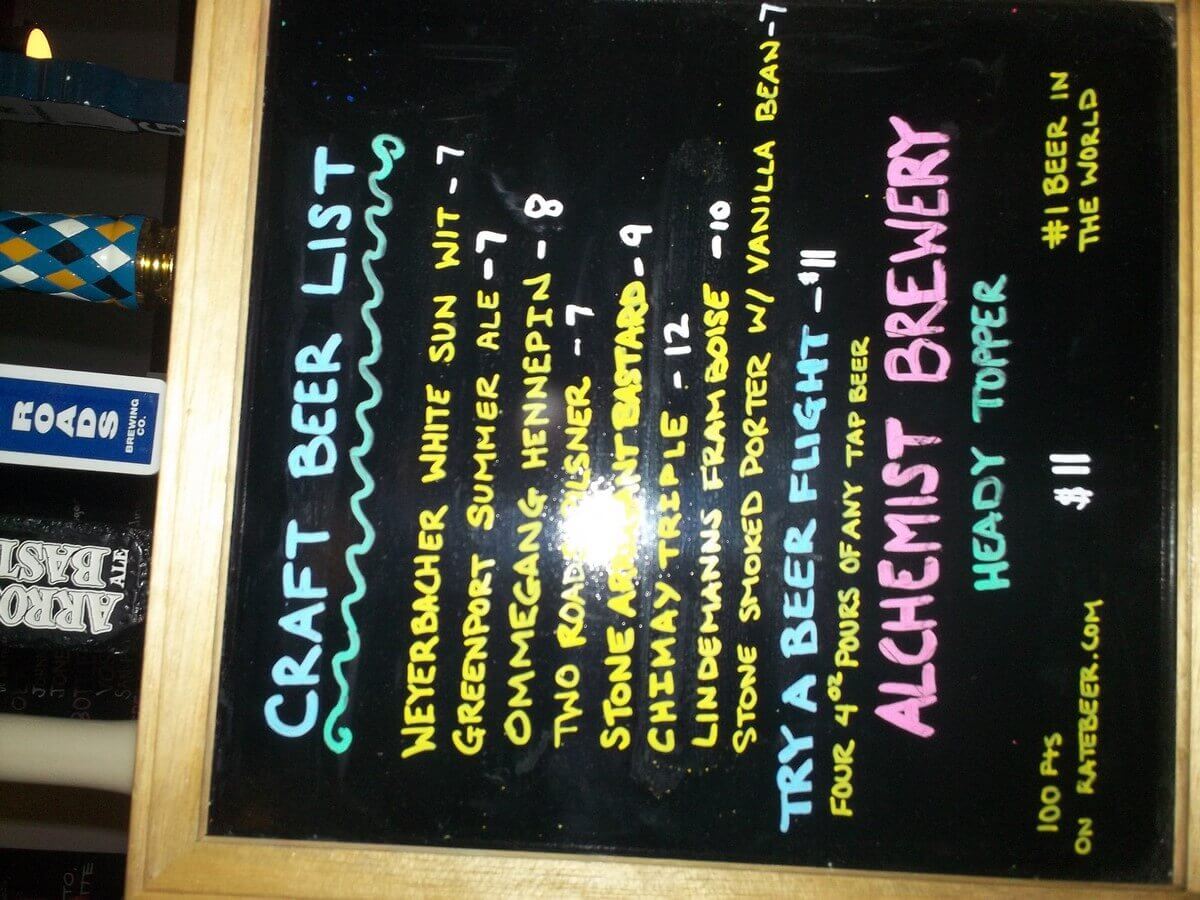 CRAFT BEER LIST
WEYERBACHER WHITE SUN WIT - 7
GREENPORT SUMMER ALE - 7
OMMEGANG HENNEPIN - 8
TWO ROADS PILSNER - 7
STONE BASTARD - 9
CHIMAY TRIPLE - 12
LINDEMANNS FRAMBOISE - 10
STONE SMOKED PORTER W/ VANILLA BEAN - 7
TRY A BEER FLIGHT - $11
FOUR 4oz POURS OF ANY TAP BEER
ALCHEMIST BREWERY
HEADY TOPPER
100 Pts
ON RATEBEER.COM
$11
#1 BEER IN
THE WORLD
ROADS
BREWING
CO.
ARRO
BAST
ALE